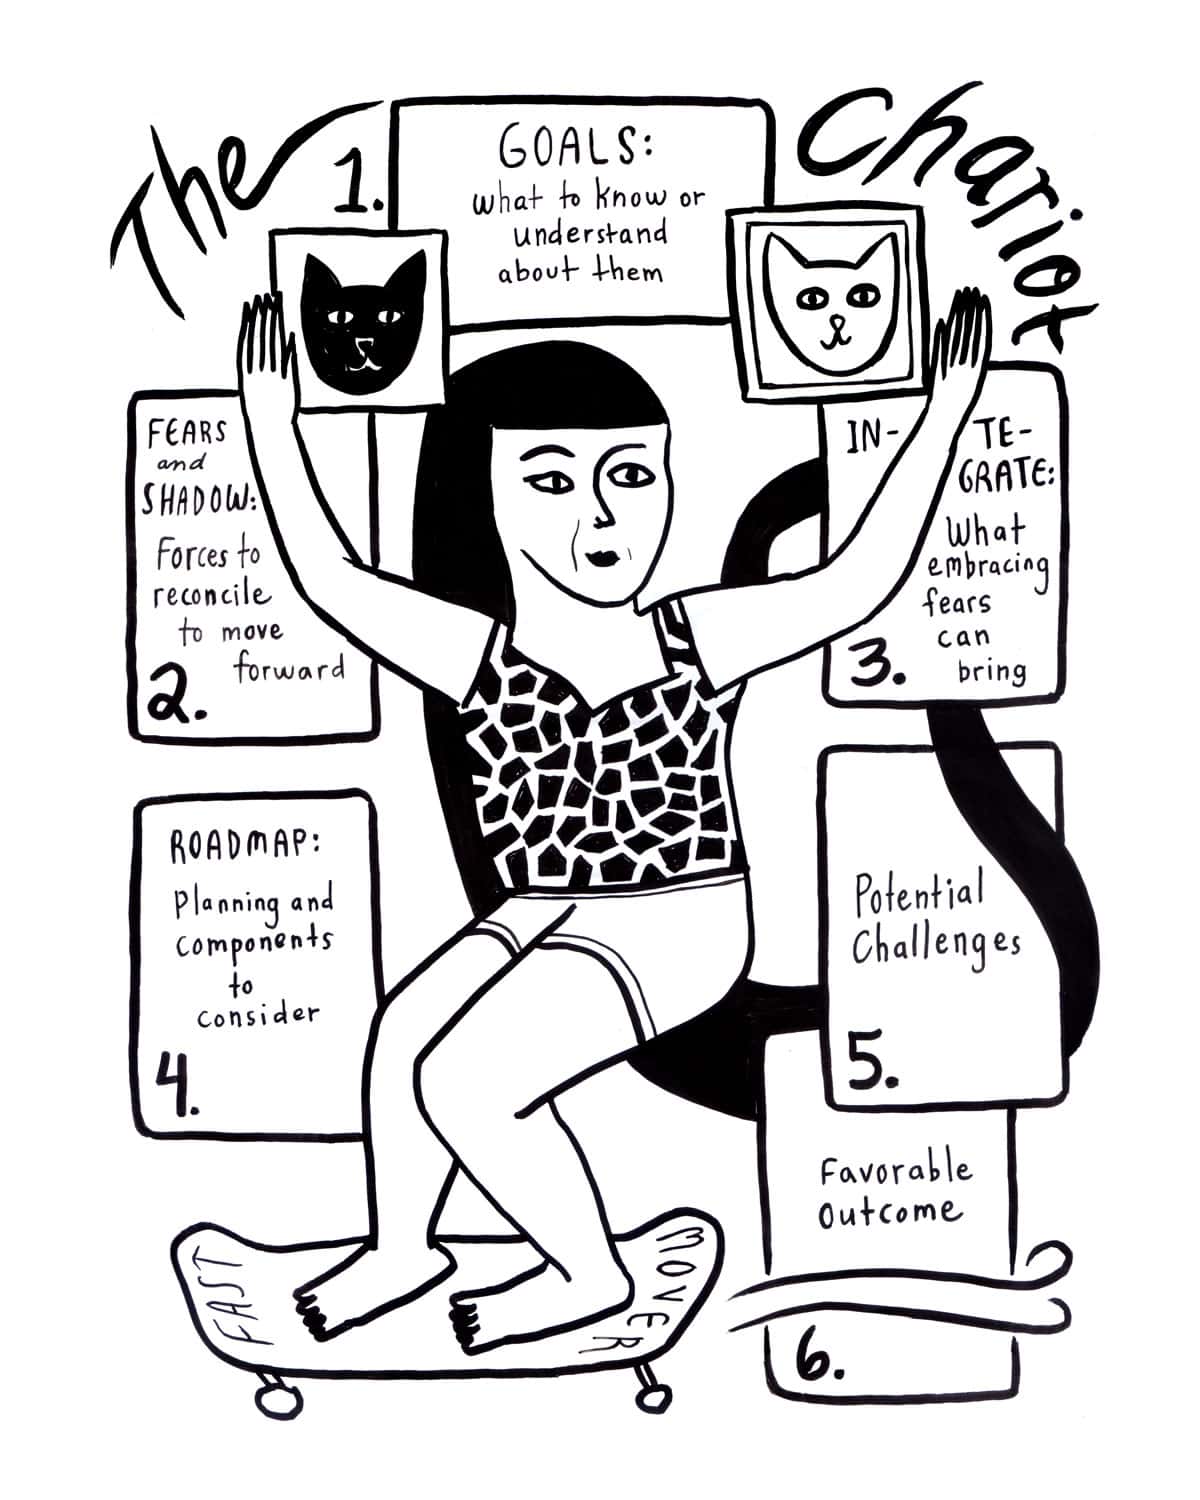 The Chariot
1.
GOALS:
what to know or
understand
about them
FEARS
and
SHADOW:
Forces to
reconcile
to move
forward
2.
IN-TE-
GRATE:
What
embracing
fears
can
bring
3.
ROADMAP:
planning and
components
to
consider
4.
Potential
Challenges
5.
Favorable
outcome
6.
FAST MOVER